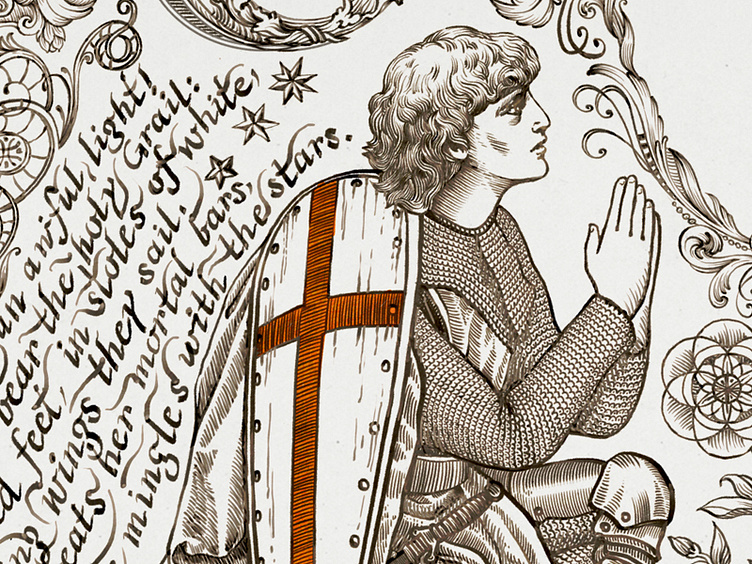 an awful light!
bear the holy Grail:
ed feet, in stoles of white,
ng wings they sail.
eats her mortal bars,
mingles with the stars.